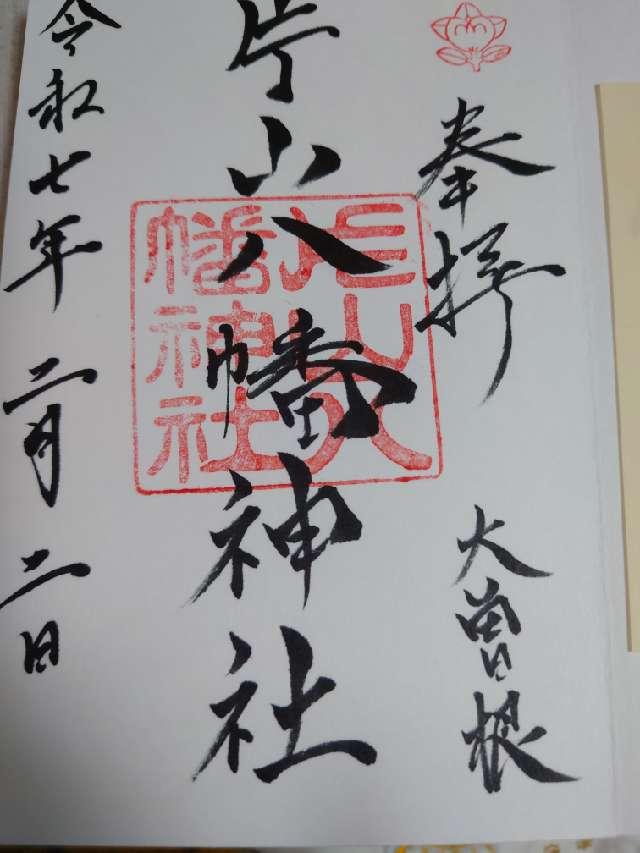 奉拝
大曽根
片山八幡神社
片山八
幡神社
令和七年二月二日